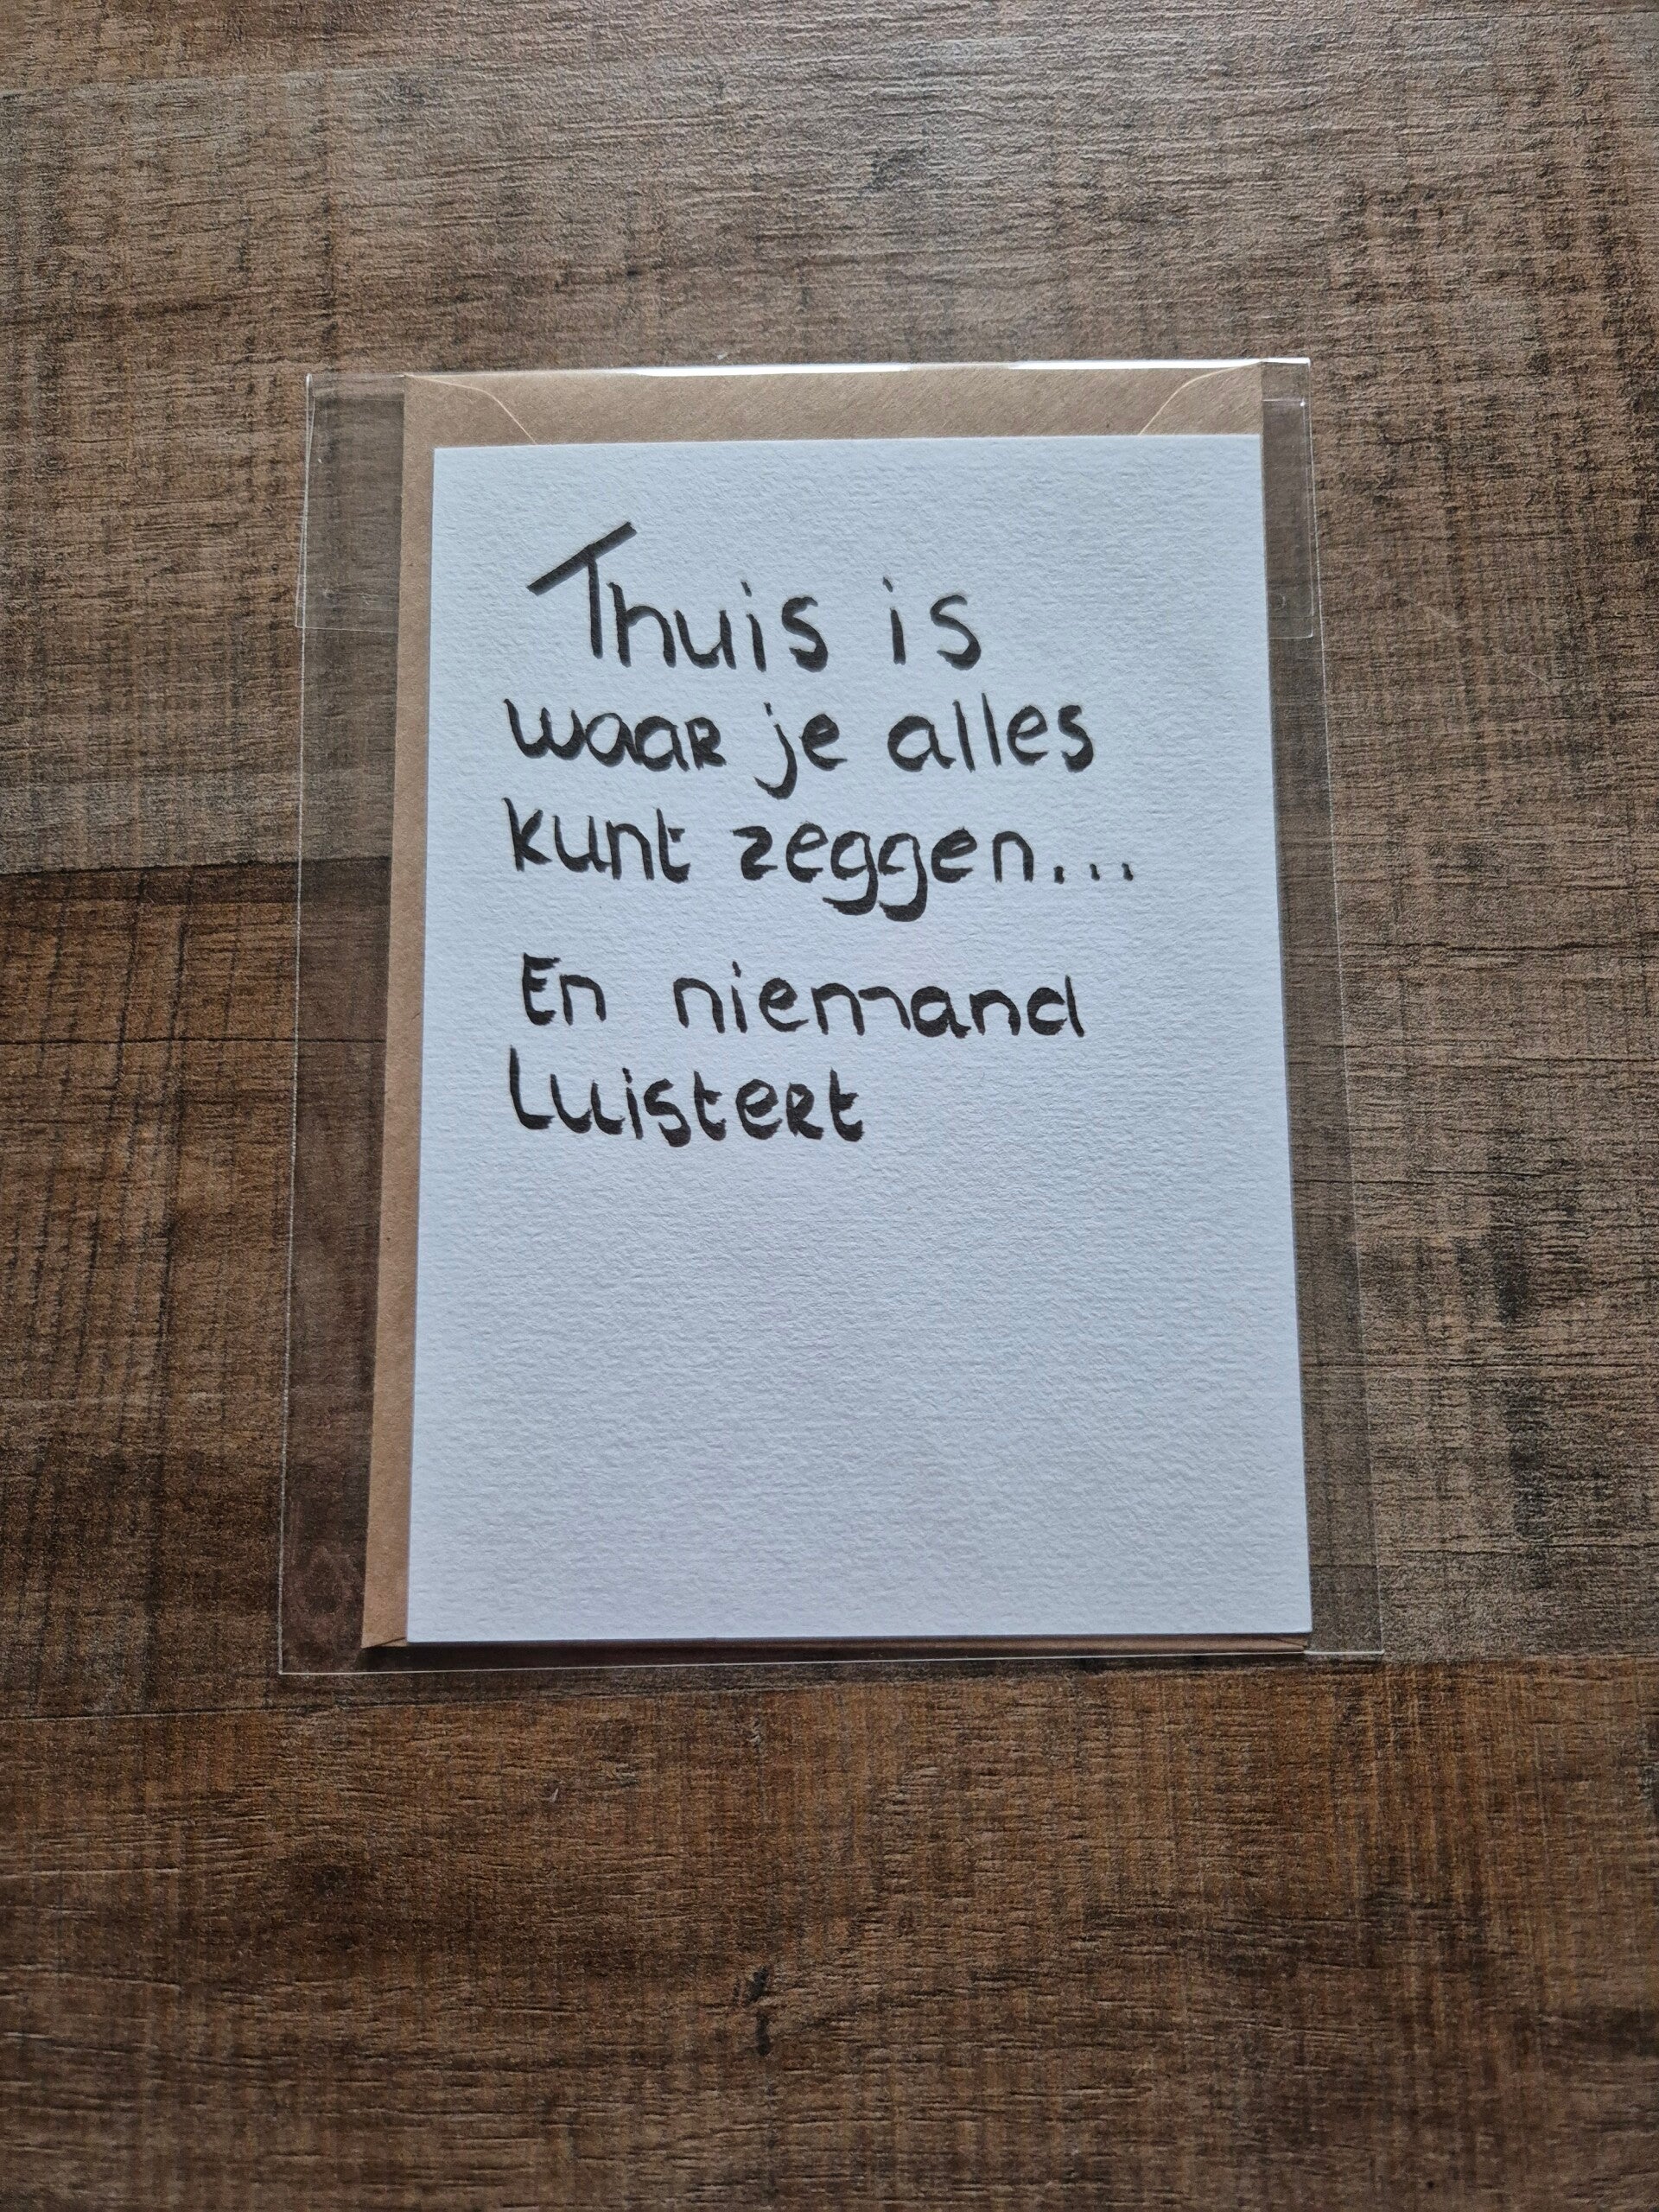 Thuis is
waar je alles
kunt zeggen...
En niemand
luistert